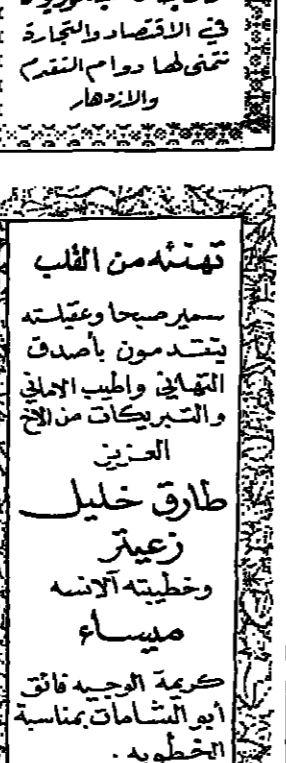 في الاقتصاد والتجارة
نتمنى لها دوام التقدم
والازدهار
تهنئه من القلب
سمير صبحا وعقيلته
يتقدمون بأصدق
التهاني واطيب الاماني
والتبريكات من الاخ
العزيز
طارق خليل
زعيتر
وخطيبته الانسه
ميساء
كريمة الوجيه فائق
ابو الشامات بمناسبة
الخطوبه .